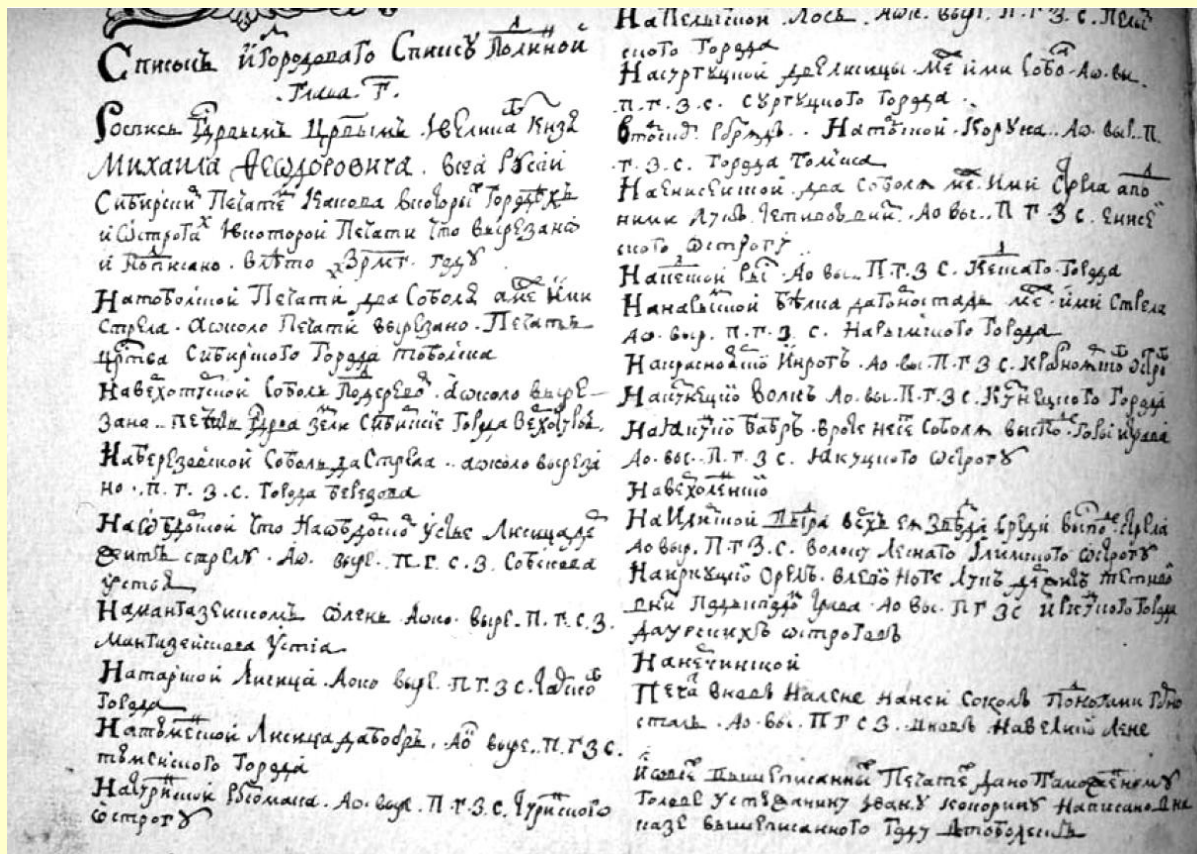 Списокъ и Городоваго Списку Полинной
Глава Г.
Роспись Гдрвымъ Црвымъ. и Великаг Кнзя
Михаила Ѳеодоровича. всеа Русии
Сибирски Печате Какова вкоторы Городѣхъ
и Острога и которой Печати что вырезано
и Пописано. влѣто ЗРМГ. году
На тоболской Печати два Соболя а ме ими
Стрела. а около Печати вырезано. Печать
цртва Сибирского Города тоболска
На вехотуской Соболь Подерево. а около выре-
зано. печать Гдрва земли Сибиские Города Вехотуря.
На березовской Соболь да Стрела. а около вырезА
но. П. Г. З. С. Города березова
На обдоской что На обдоско устье Лисица де
жить стрелу. Ао. выре. П. Г. С. З. Собскова
устья
На мангазеискомъ Олень. Ако. выре. П. Г. С. З.
Мангазеискова Устiа
На тарской Лисица. Аоко выре. П. Г. З. С. Тарско
Города
На тюменской Лисица да бобръ. Ао выре. П. Г. З. С.
тюменского Города
На туринской Росомака. Ао. выре. П. Г. З. С. туринского
Острогу
На Пелымской Лось. Аок. выре. П. Г. З. С. Пелы
ского Города
На сургуцкой две Лисицы. Ме ими Собо. Ао. вы
П. Г. З. С. Сургуцкого Города.
На томской. Ао. выре. П.
Г. З. С. Города томска
На Енисейской. два Соболя ме. Ими Стрела а по
ними Лукъ тетивою Ао вы. П. Г. З. С. Енисе
ского острогу
На кецкой Ры. Ао вы. П. Г. З. С. Кецкого Города
На нарымской бѣлка да горностаи ме. ими Стрела
Ао. выр. П. Г. З. С. Нарымского Города
На красноярско Инрогъ. Ао. вы. П. Г. З. С. Красноярско остро
На кузнецко Волкъ Ао. вы. П. Г. З. С. Кузнецкого Города
На Якуцко бабръ
Ао. вы. П. Г. З. С. Якуцкого острогу
На вехоленско
На Илимской
Ао выр. П. Г. З. С. волоку Леского Илимского острогу
На иркуцко Орелъ. в лево Ноге Лукъ держитъ тетиво
Ао. вы. П. Г. З. С. Иркуцкого Города
Даурскихъ острогов
На нечинской
Печа вновь На лене на ней Соколъ По ногами Горно
сталь. Ао. вы. П. Г. С. З. вновь На великой Лене
выше писанны Печате Дано Таможеному
Голове Устюжанину Ивану кокорину Написано в на
казе вышеписанного Году в тоболескъ